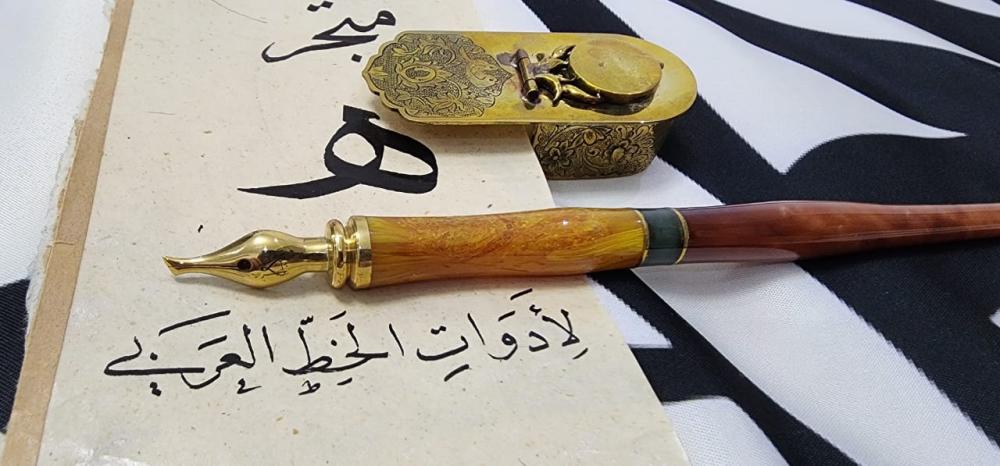 متجر
هـ
لِأَدَوَاتِ الخَطِّ العَرَبِي